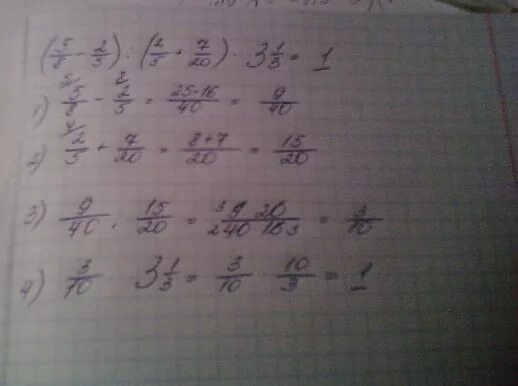 (5/8 - 2/5) : (2/5 + 7/20) · 3 1/3 = 1
1) 5/8 - 2/5 = 25-16/40 = 9/40
2) 2/5 + 7/20 = 8+7/20 = 15/20
3) 9/40 : 15/20 = 9 20/40 15 = 3/10
4) 3/10 · 3 1/3 = 3/10 · 10/3 = 1